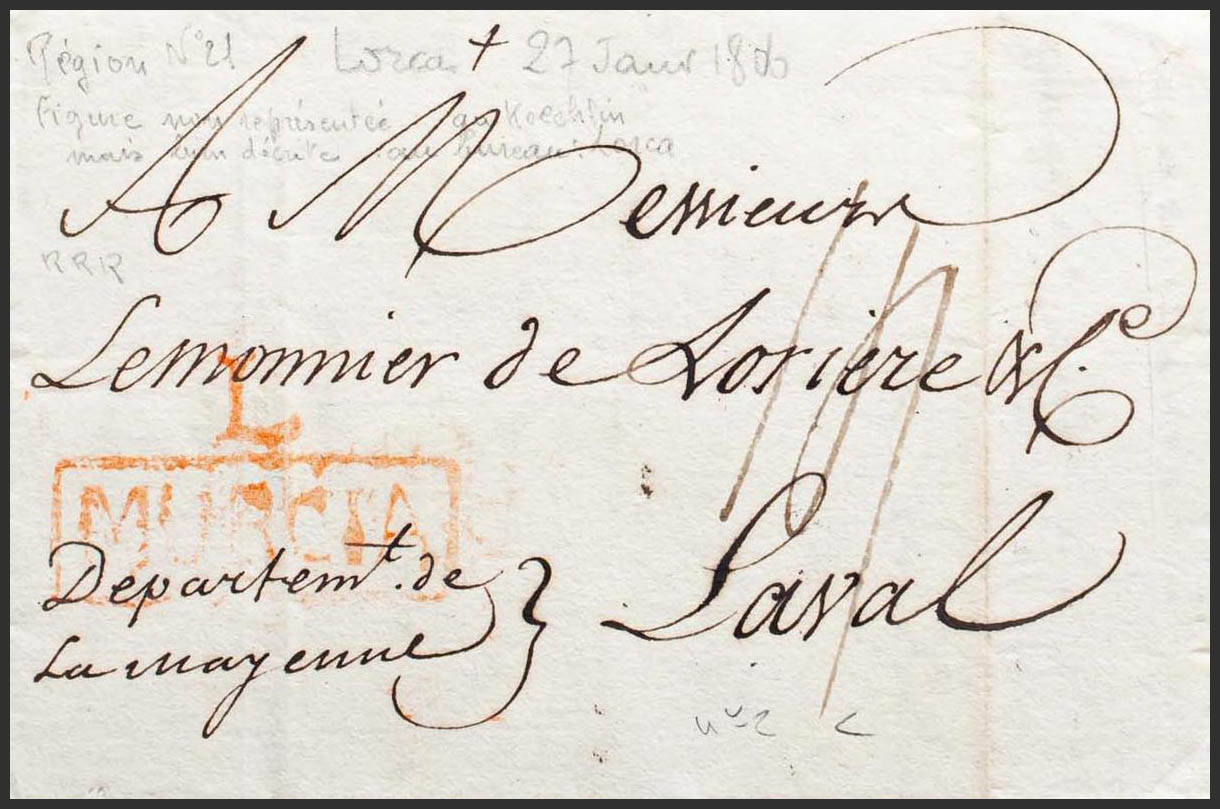 Région N° 21 Lorca + 27 Janv 1806
Figure non représentée au Koechlin
mais bien décrite au bureau: Lorca
A Messieurs
RRR
Lemonnier de Loriere & Ce.
L
MURCIA
Departemt. de
La mayenne
Laval